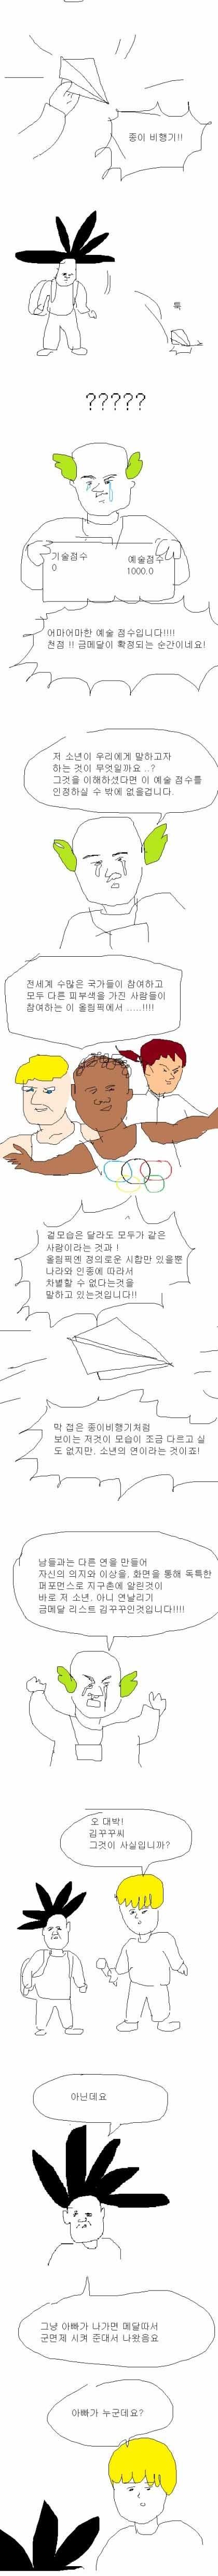 종이 비행기!!
툭
?????
기술점수
0
예술점수
1000.0
어마어마한 예술 점수입니다!!!!
천점 !! 금메달이 확정되는 순간이네요!
저 소년이 우리에게 말하고자
하는 것이 무엇일까요 ..?
그것을 이해하셨다면 이 예술 점수를
인정하실 수 밖에 없을겁니다.
전세계 수많은 국가들이 참여하고
모두 다른 피부색을 가진 사람들이
참여하는 이 올림픽에서 .....!!!!
겉모습은 달라도 모두가 같은
사람이라는 것과 !
올림픽엔 정의로운 시합만 있을뿐
나라와 인종에 따라서
차별할 수 없다는것을
말하고 있는것입니다!!
막 접은 종이비행기처럼
보이는 저것이 모습이 조금 다르고 실
도 없지만, 소년의 연이라는 것이죠!
남들과는 다른 연을 만들어
자신의 의지와 이상을, 화면을 통해 독특한
퍼포먼스로 지구촌에 알린것이
바로 저 소년, 아니 연날리기
금메달 리스트 김꾸꾸인것입니다!!!!
오 대박!
김꾸꾸씨
그것이 사실입니까?
아닌데요
그냥 아빠가 나가면 메달따서
군면제 시켜 준대서 나왔음요
아빠가 누군데요?